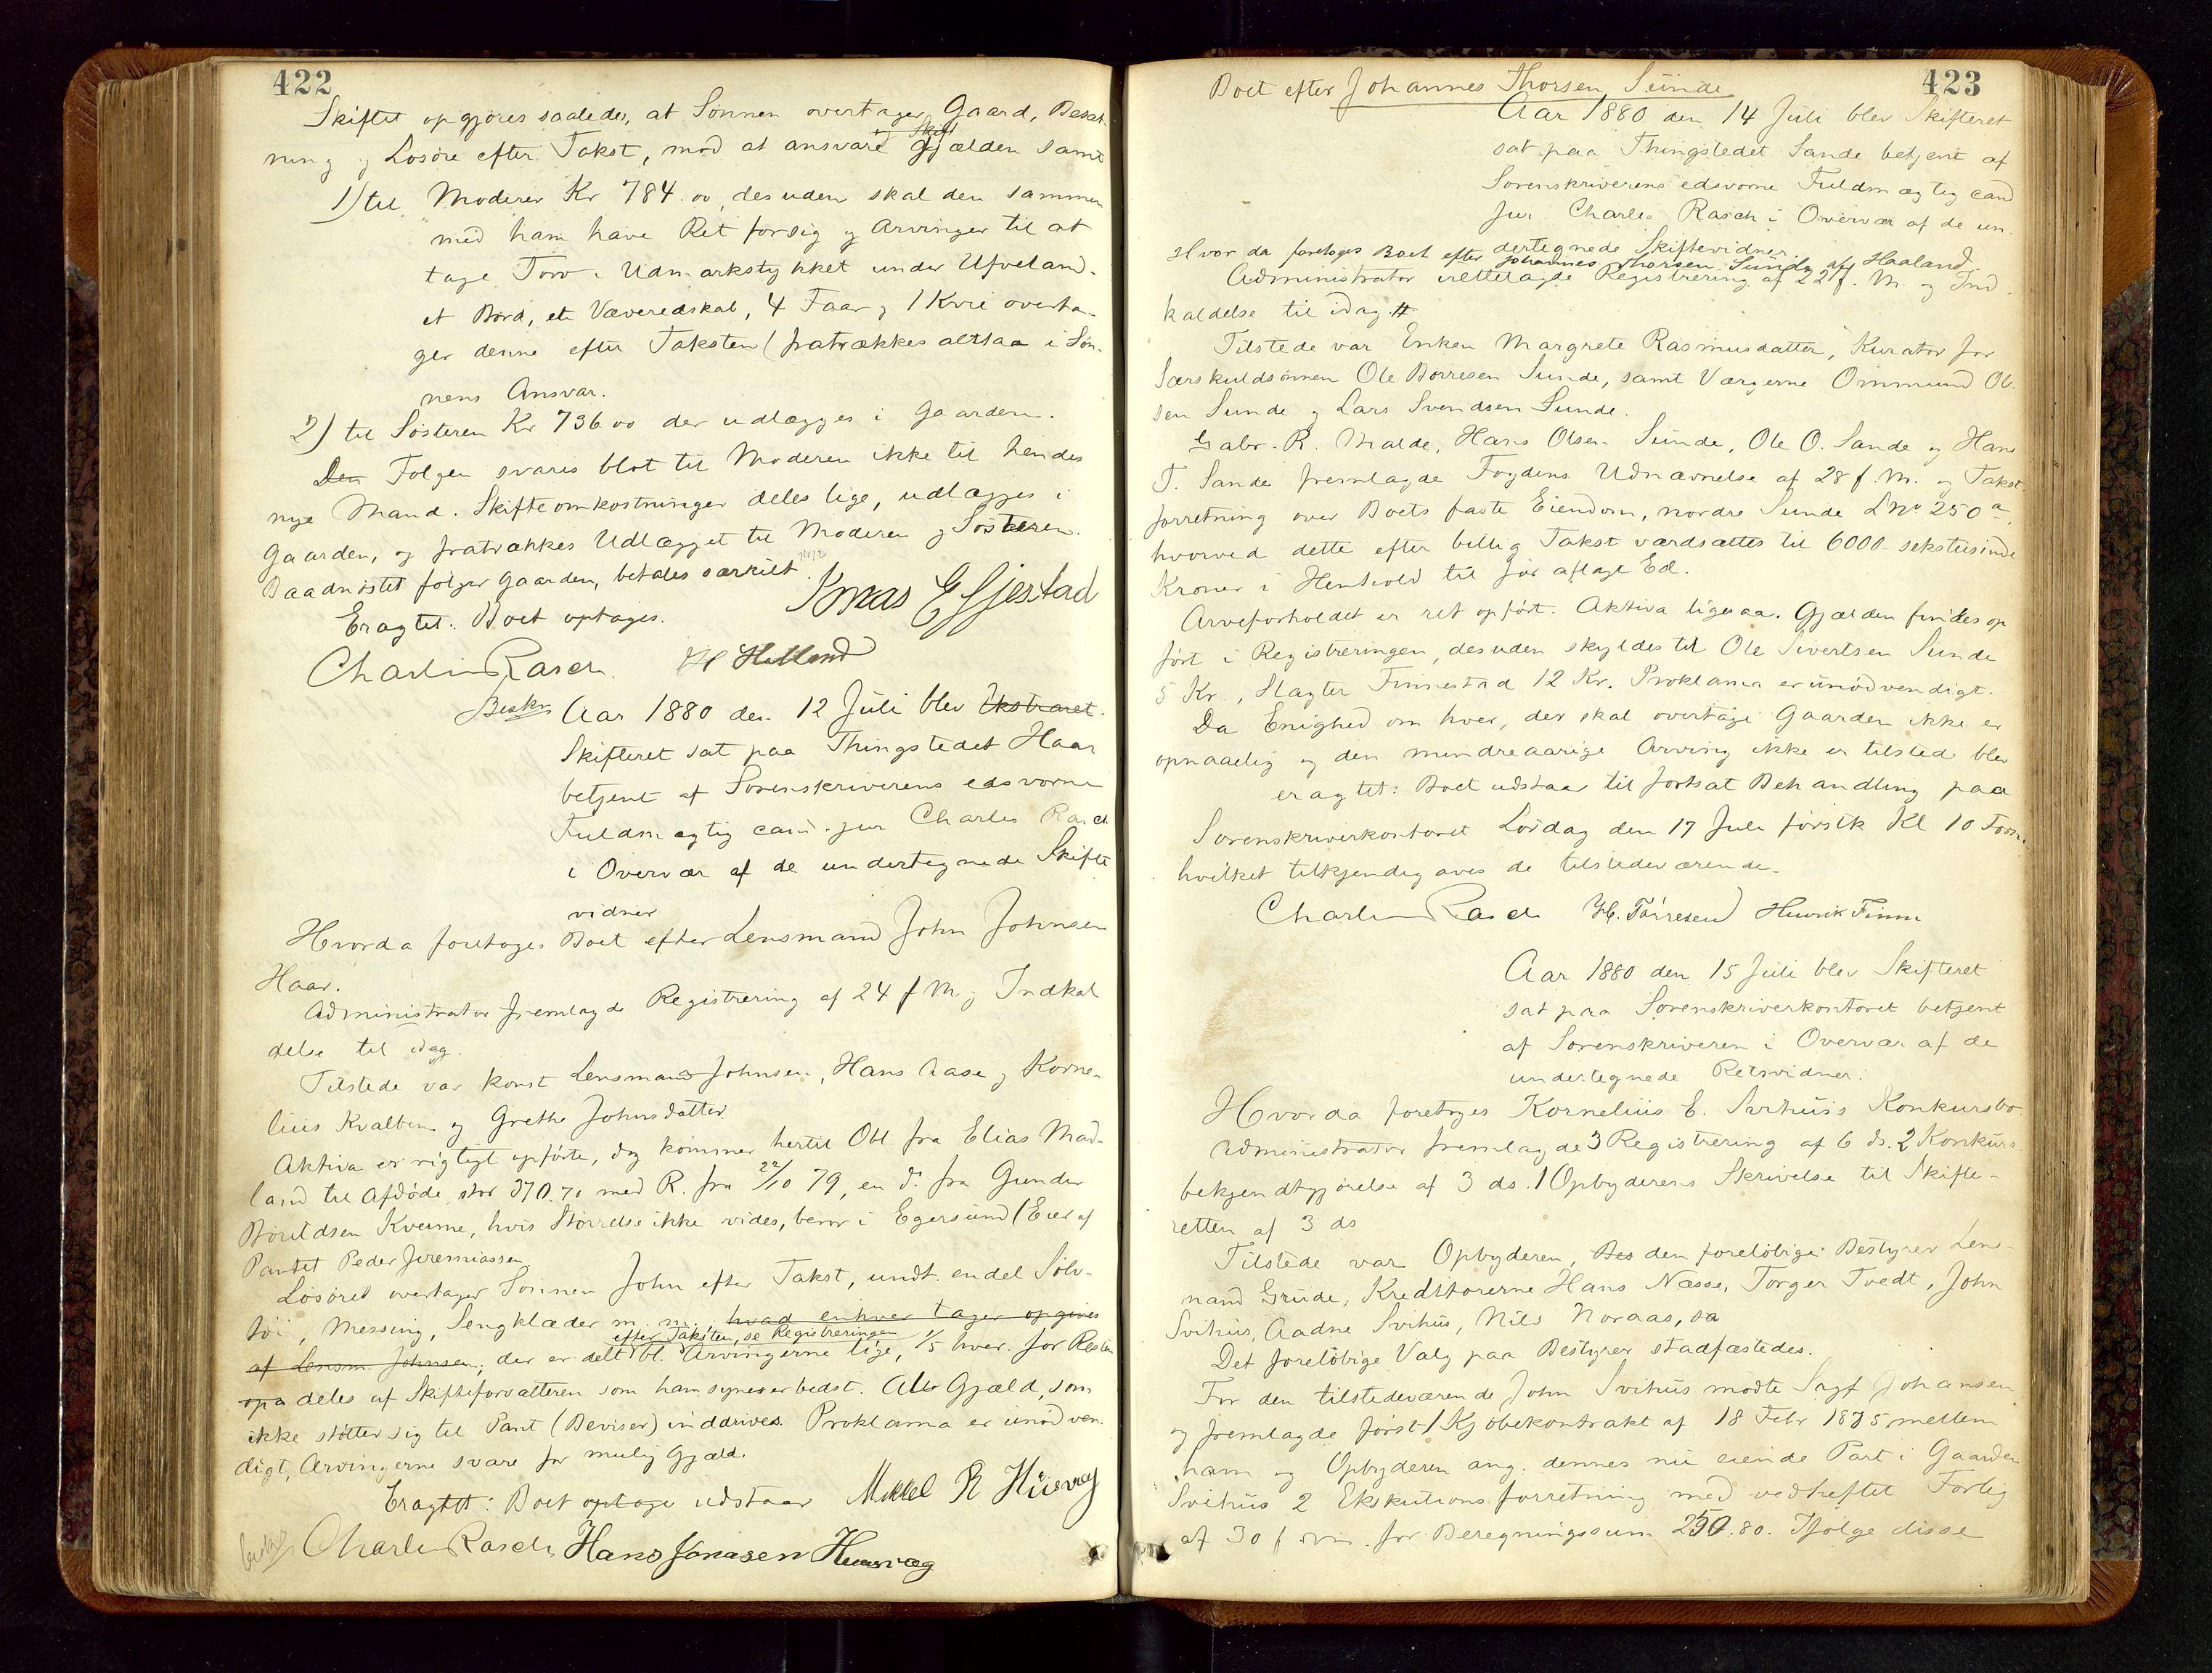 422
Skiftet opgjøres saaledes, at Sønnen overtager Gaard, Besæt-
ning og Løsøre efter Takst, mod at ansvare Gjælden samt
1) til Moderen Kr 784.00, desuden skal den sammen
med ham have Ret for sig og Arvinger til at
tage Torv i Udmarkstykket under Ufveland.
et Bord, et Væveredskab, 4 Faar og 1 Kvie overta-
ger denne efter Taksten (fratrækkes altsaa i Søn-
nens Ansvar.
2) til Søsteren Kr 736.00 der udlægges i Gaarden.
Den Følgen svares blot til Moderen ikke til hendes
nye Mand. Skifteomkostninger deles lige, udlægges i
Gaarden, og fratrækkes Udlægget til Moderen og Søsteren.
Baadnøstet følger Gaarden, betales særskilt.
Eragtet: Boet optages. Jonas E Gjestad
Charles Rasch. Helland
Beskr Aar 1880 den 12 Juli blev Ekstraret
Skifteret sat paa Thingstedet Haar
betjent af Sorenskriverens edsvorne
Fuldmægtig cand. jur Charles Rasch
i Overvær af de undertegnede Skifte
vidner
Hvor da foretoges Boet efter Lensmand John Johnsen
Haar.
Administrator fremlagde Registrering af 24 f M. og Indkal
delse til idag.
Tilstede var konst Lensmand Johnsen, Hans Aase og Korne-
lius Kvalbein og Grethe Johnsdatter
Aktiva er rigtigt opførte, dog kommer hertil Obl. fra Elias Mad-
land til Afdøde, stor 370.70 med R. fra 22/10 79, en do fra Gunder
Børildsen Kveime, hvis Størrelse ikke vides, beror i Egersund (Eier af
Pantet Peder Jeremiassen
Løsøret overtager Sønnen John efter Takst, undt. endel Sølv-
tøi, Messing, Sengklæder m. m., hvad enhver tager opgives
efter Taksten, se Registreringen
af Lensm. Johnsen, der er delt bl. Arvingerne lige, 1/5 hver. for Resten
opa deles af Skifteforvalteren som ham synes er bedst. Al Gjæld, som
ikke støtter sig til Pant (Beviser) inddrives. Proklama er unødven-
digt, Arvingerne svare for mulig Gjæld.
Eragtet: Boet optage udstaar Mikkel R Husvæg
Charles Rasch Hans Jonasen Husvæg
423
Boet efter Johannes Thorsen Sunde
Aar 1880 den 14 Juli blev Skifteret
sat paa Thingstedet Sande betjent af
Sorenskriverens edsvorne Fuldmægtig cand
jur. Charles Rasch i Overvær af de un
dertegnede Skiftevidner
Hvor da foretoges Boet efter Johannes Thorsen Sunde af Haaland
Administrator irettelagde Registrering af 22 f. M. og Ind
kaldelse til idag.
Tilstede var Enken Margrete Rasmusdatter, Kurator for
Særskuldsønnen Ole Børresen Sunde, samt Værgerne Ommund Ol-
sen Sunde og Lars Svendsen Sunde.
Gabr. R. Malde, Hans Olsen Sunde, Ole O. Sande og Hans
T. Sande fremlagde Fogdens Udnævnelse af 28 f. M. og Takst
forretning over Boets faste Eiendom, nordre Sunde LNo 250 a,
hvorved dette efter billig Takst værdsættes til 6000 sekstusinde
Kroner i Henhold til før aflagt Ed.
Arveforholdet er ret opført. Aktiva ligesaa. Gjælden findes op
ført i Registreringen, desuden skyldes til Ole Sivertsen Sunde
5 Kr., Slagter Finnestad 12 Kr. Proklama er unødvendigt.
Da Enighed om hver, der skal overtage Gaarden ikke er
opnaaelig og den mindreaarige Arving ikke er tilsted blev
eragtet: Boet udstaar til fortsat Behandling paa
Sorenskriverkontoret Lørdag den 17 Juli førstk Kl 10 Form.
hvilket tilkjendegaves de tilstedeværende.
Charles Rasch H. Tørresen Henrik Finne
Aar 1880 den 15 Juli blev Skifteret
sat paa Sorenskriverkontoret betjent
af Sorenskriveren i Overvær af de
undertegnede Retsvidner.
Hvor da foretoges Kornelius E. Svihus Konkursbo
Administrator fremlagde 3 Registrering af 6 ds. 2 Konkurs
bekjendtgjørelse af 3 ds. 1 Opbyderens Skrivelse til Skifte-
retten af 3 ds
Tilstede var Opbyderen, Bes den foreløbige Bestyrer Lens-
mand Grude, Kreditorerne Hans Næsse, Torger Tvedt, John
Svihus, Aadne Svihus, Nils Noraas, sa
Det foreløbige Valg paa Bestyrer stadfæstedes.
For den tilstedeværende John Svihus mødte Sagf Johansen
og fremlagde først 1 Kjøbekontrakt af 18 Febr 1875 mellem
ham og Opbyderen ang. dennes nu eiende Part i Gaarden
Svihus 2 Eksekutionsforretning med vedheftet Forlig
af 30 f for Beregningssum 250.80. Ifølge disse